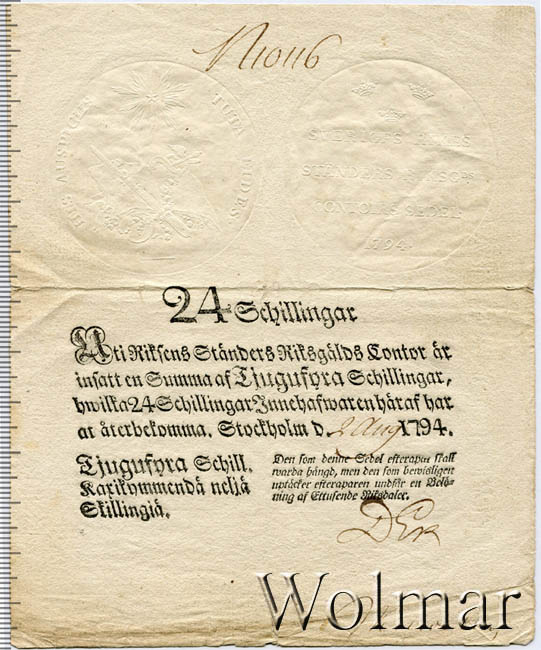 N 10116
HIS AUSPICIIS TUTA FIDES
SVERIGES RIKES
STÄNDERS
CONTOIRS SEDEL
1794.
24 Schillingar
Uti Riksens Ständers Riksgälds Contor är
insatt en Summa af Tjugufyra Schillingar,
hwilka 24 Schillingar Innehafwaren häraf har
at återbekomma. Stockholm d. 2 Aug 1794.
Tjugufyra Schill.
Kaxikymmendä neljä
Skillingiä.
Den som denne Sedel efterapar skall
warda hängd, men den som bewisligen
uptäcker efteraparen undfår en Belö-
ning af Ettusende Riksdaler.
Wolmar